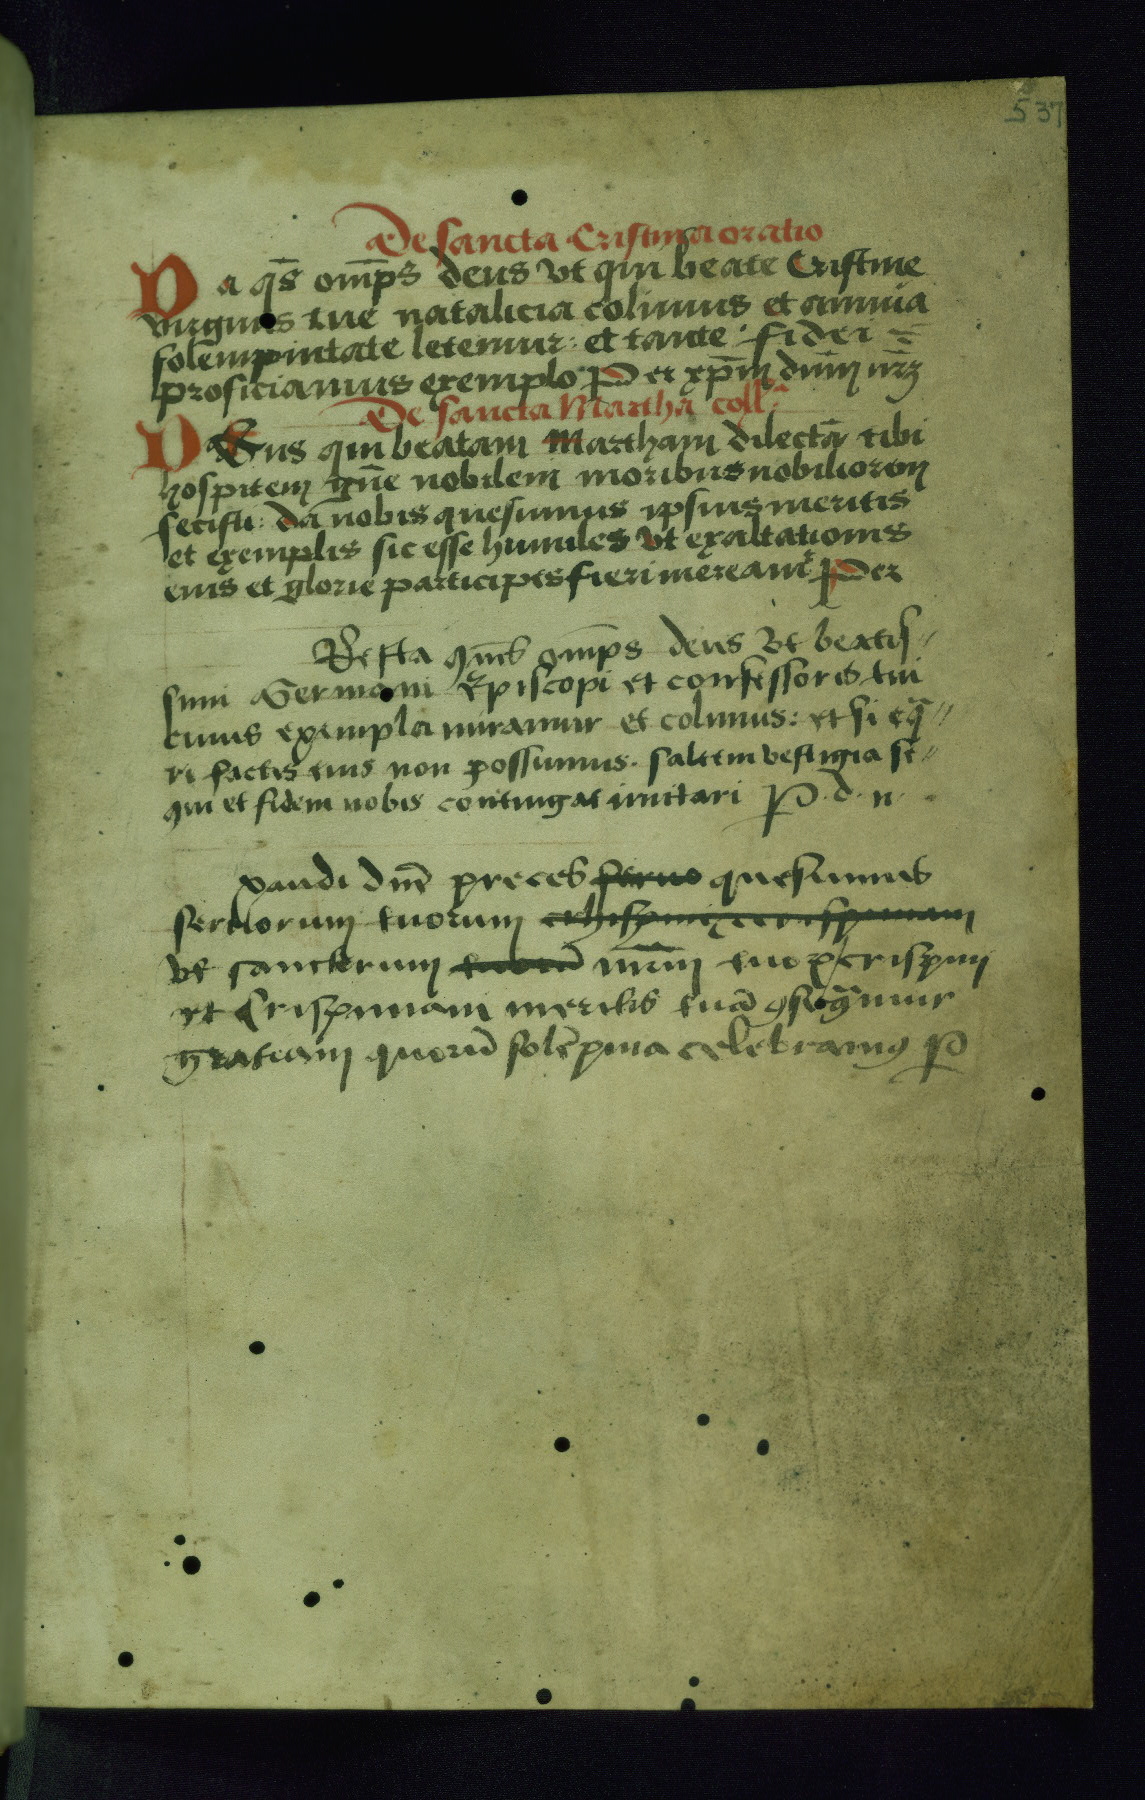 537
De sancta Cristina oratio
Da qs̄ om̄ps deus vt qui beate Cristine
virginis tue natalicia colimus et annua
solempnitate letemur: et tante fidei
proficiamus exemplo Per xp̄m dn̄m nr̄ꝫ
De sancta Martha coll̄
Deus qui beatam Martham dilectā tibi
hospitem gn̄e nobilem moribus nobiliorem
fecisti: da nobis quesumus ipsius meritis
et exemplis sic esse humiles vt exaltationis
eius et glorie participes fieri mereamur Per
Presta qm̄s om̄ps deus vt beatis
simi Germani Episcopi et confessoris tui
cuius exempla miramur et colimus: et si eq̄
ri factis eius non possumus. saltem vestigia se
qui et fidem nobis contingat imitari P. d. n.
xaudi dn̄e preces quesumus
seruorum tuorum
vt sanctorum mr̄m tuoꝝ crispini
et Crispiniani meritis tuā ꝯseq̄mur
gratiam quorū solēpnia celebramꝰ P